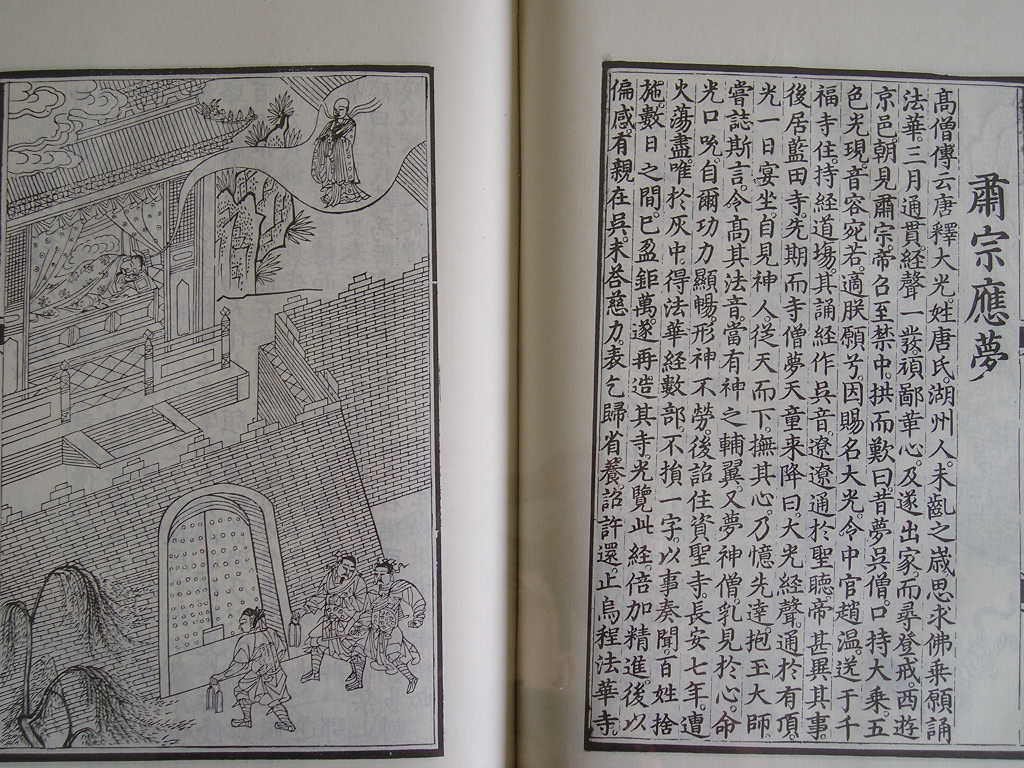 肅宗應夢
高僧傳云唐釋大光。姓唐氏。湖州人。未齔之歲。思求佛乘。願誦
法華。三月通貫。經聲一發。頑鄙革心。及遂出家。而尋登戒。西遊
京邑。朝見肅宗。帝召至禁中。拱而歎曰。昔夢吳僧。口持大乘。五
色光現。音容宛若。適朕願兮。因賜名大光。令中官趙溫。送于千
福寺住。持經道場。其誦經作吳音。遼遼通於聖聽。帝甚異其事。
後居藍田寺。先期而寺僧夢天童来降曰。大光經聲。通於有頂。
光一日宴坐。自見神人從天而下。撫其心。乃憶先達抱玉大師
嘗誌斯言。令高其法音。當有神之輔翼。又夢神僧。乳見於心。命
光口吮。自爾功力顯暢。形神不勞。後詔住資聖寺。長安七年。遭
火蕩盡。唯於灰中得法華經數部。不損一字。以事奏聞。百姓捨
施。數日之間。已盈鉅萬。遂再造其寺。光覽此經。倍加精進。後以
偏感有親在吳。未荅慈力。表乞歸省養。詔許還。止烏程法華寺。